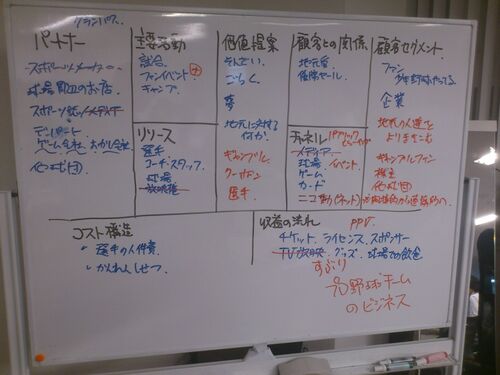 パートナー
スポーツメーカー
球場周辺のお店
スポーツ紙、メディア
デパート
ゲーム会社、おかし会社
他球団
主要活動
試合
ファンイベント
キャンプ
リソース
選手
コーチ・スタッフ
球場
放映権
価値提案
ごらく
夢
地元に対する
何か
ギャンブル
クーポン
選手
顧客との関係
地元愛
優勝セール
チャネル
パブリック
メディア
球場 イベント
ゲーム
カード
顧客セグメント
ファン
少年野球やってる
企業
地元の人達を
よりまきこむ
ギャンブルファン
株主
他球団
コスト構造
選手の人件費
かんれんしせつ
収益の流れ PPV
チケット、ライセンス、スポンサー
TV放映、グッズ、球場での飲食
プロ野球チーム
のビジネス